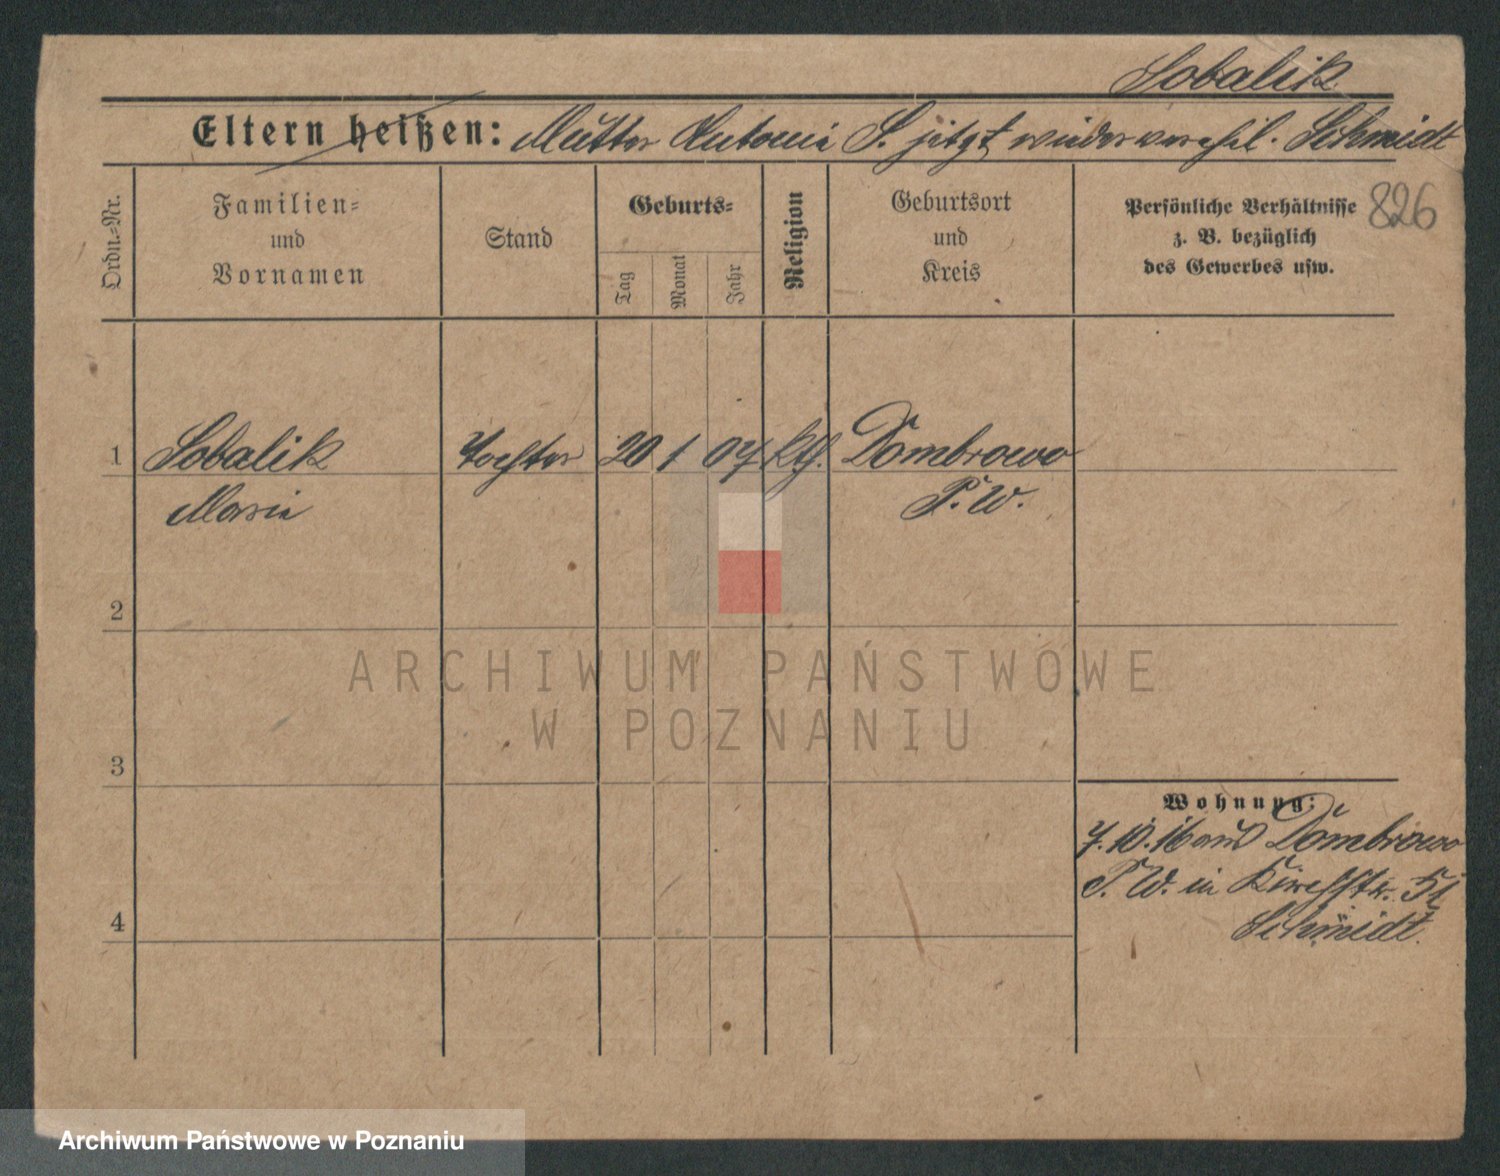 Sobalik
Eltern heißen: Mutter Antonie S. jetzt wiederverehel. Schmidt
Ordn.=Nr.
Familien=
und
Vornamen
Stand
Geburts=
Tag
Monat
Jahr
Religion
Geburtsort
und
Kreis
Persönliche Verhältnisse
z. B. bezüglich
des Gewerbes usw.
826
1 Sobalik Tochter 20 1 07 kth. Dombrowo
Marie P. W.
2
3
4
Wohnung:
7.10.16 aus Dombrowo
P. W. in Kirchstr. 51
Schmidt.
ARCHIWUM PAŃSTWOWE
W POZNANIU
Archiwum Państwowe w Poznaniu